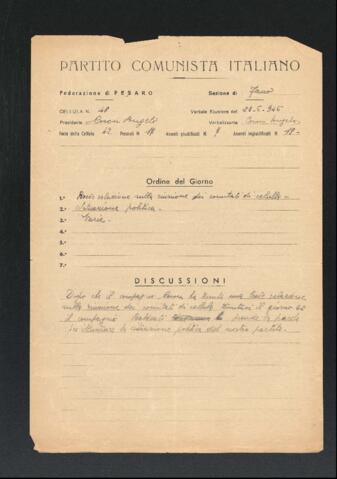 PARTITO COMUNISTA ITALIANO
Federazione di PESARO Sezione di Fano
CELLULA N. 48 Verbale Riunione del 28-5-945
Presidente Angelo Verbalizzante Angelo
Forza della Cellula 42 Presenti N. 19 Assenti giustificati N. 9 Assenti ingiustificati N. 18
Ordine del Giorno
1.° Breve relazione sulla riunione dei comitati di cellula
2.° Situazione politica.
3.° Varie.
4.°
5.°
6.°
7.°
DISCUSSIONI
Dopo che il compagno ha tenuto una breve relazione
sulla riunione dei comitati di cellula il giorno 25
il compagno prende la parola
per illustrare la situazione politica del nostro partito.